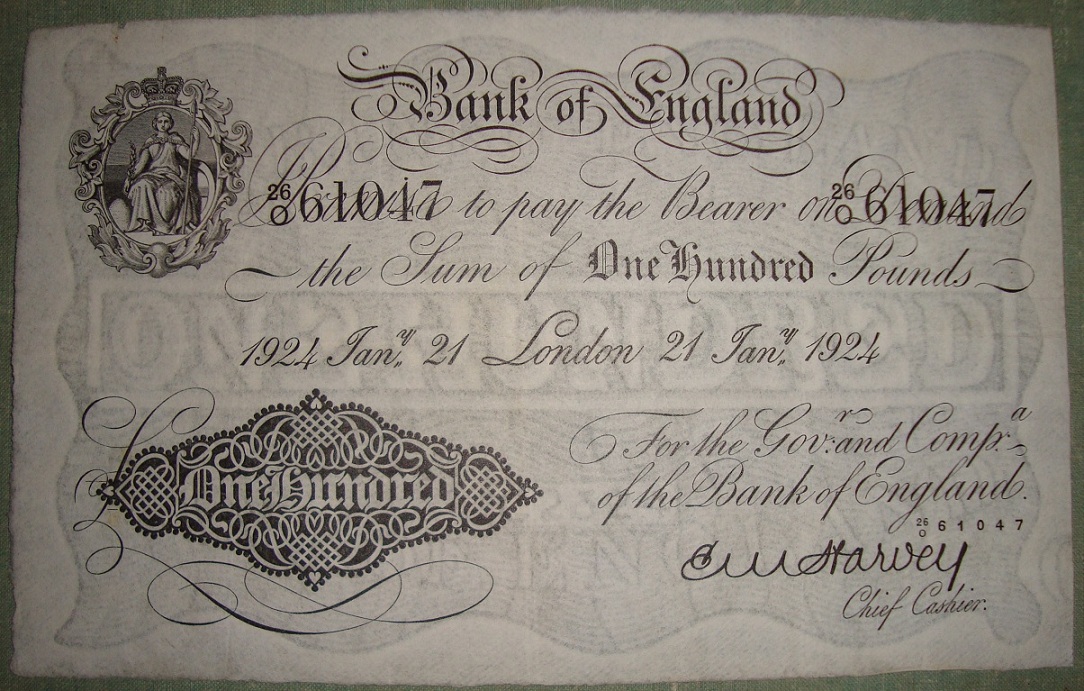 Bank of England
I Promise to pay the Bearer on Demand
26/O 61047 26/O 61047
the Sum of One Hundred Pounds
1924 Jany. 21 London 21 Jany. 1924
For the Govr. and Compa.
£ One Hundred
of the Bank of England.
26/O 61047
E M Harvey
Chief Cashier.